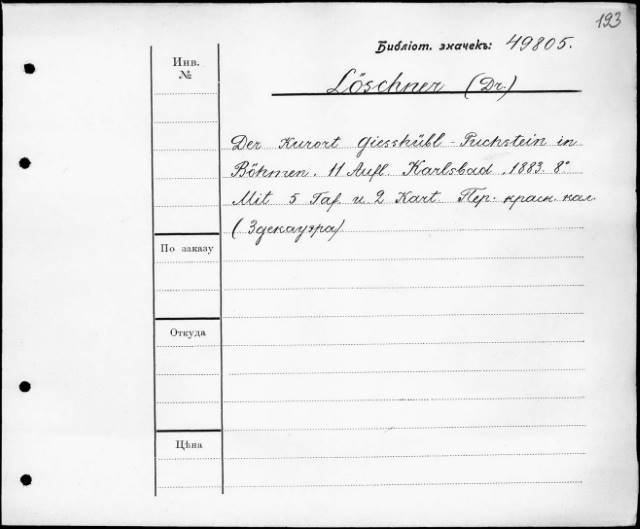 193
Библіот. значекъ: 49805.
Инв.
№
Löschner (Dr.)
Der Kurort Giesshübl-Puchstein in
Böhmen. 11 Aufl. Karlsbad, 1883. 8°
Mit 5 Taf. u. 2 Kart. Пер. красн. кал.
(Здекауэра)
По заказу
Откуда
Цѣна